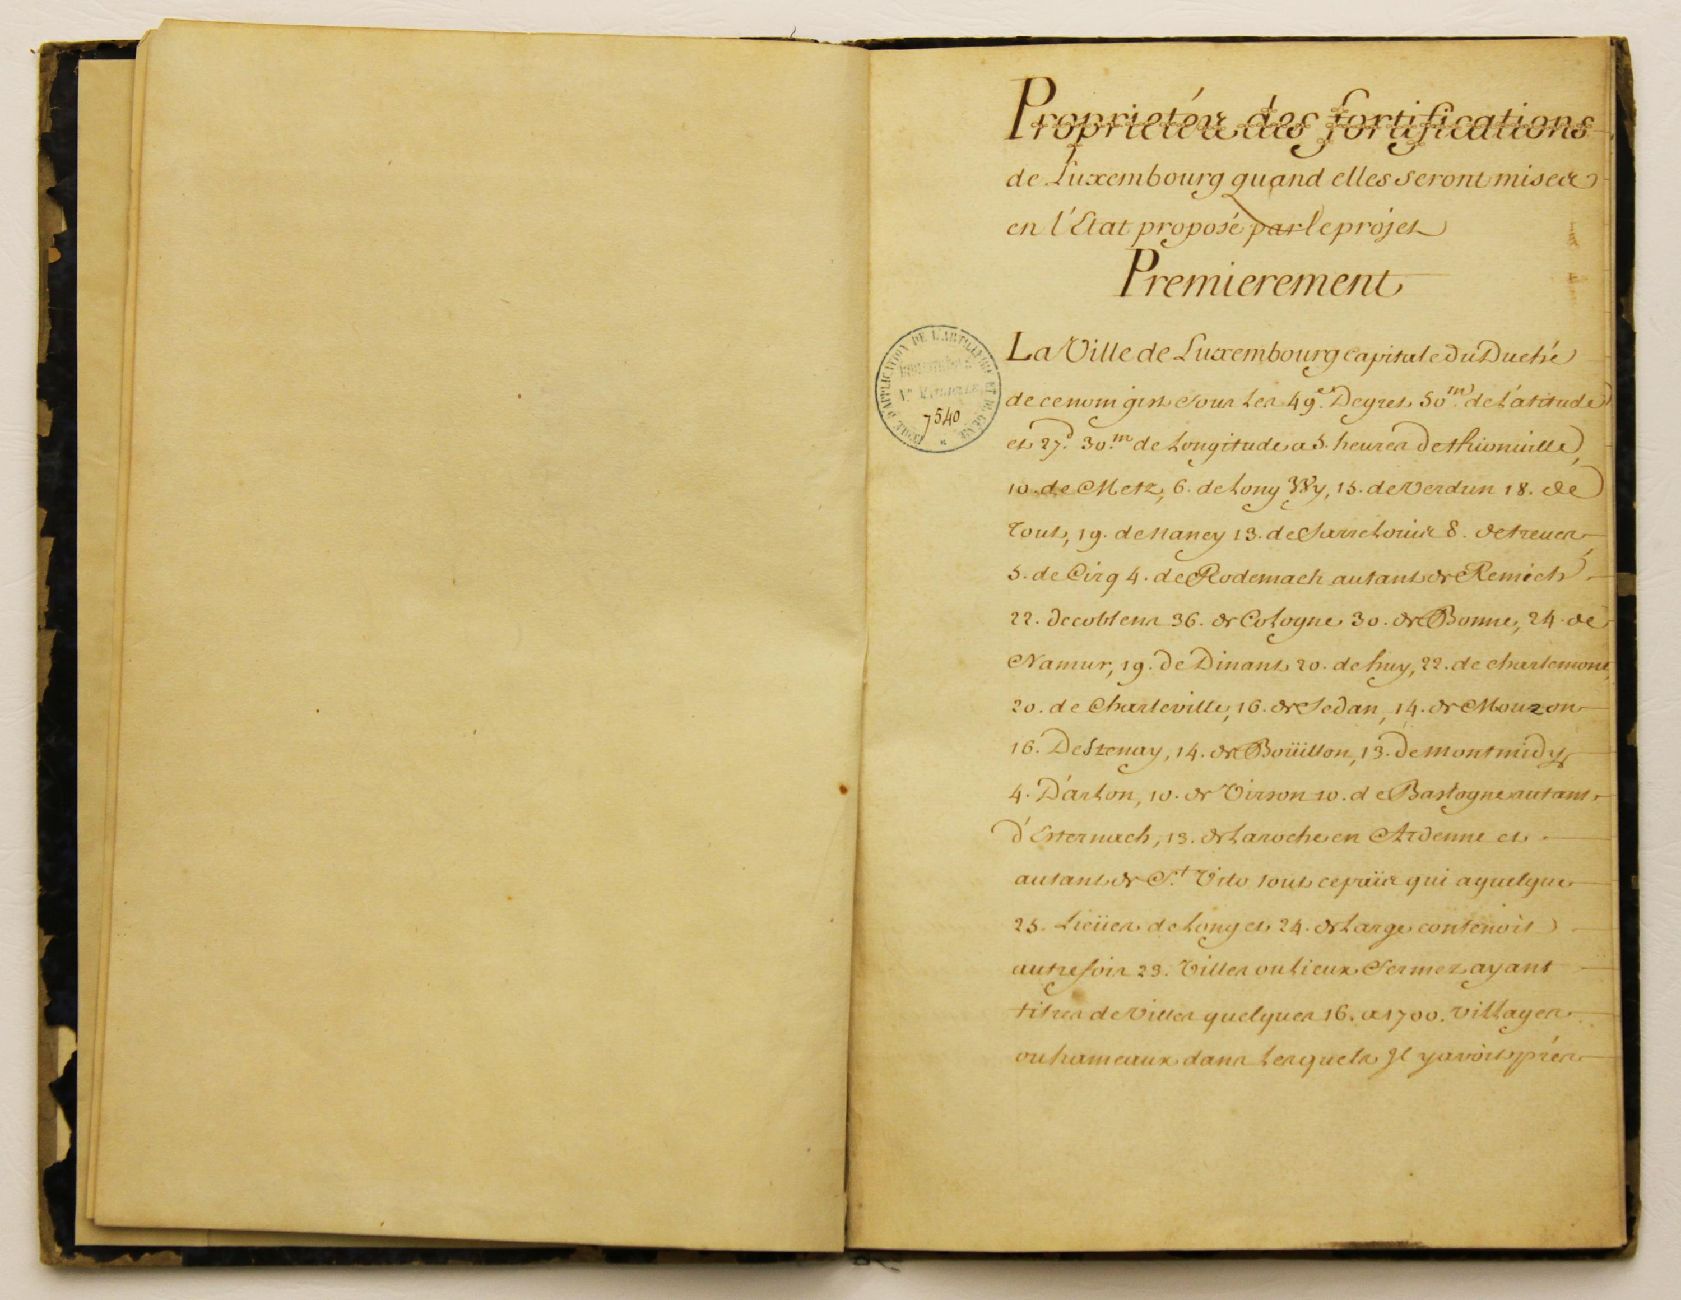 Proprietéz des fortifications
de Luxembourg quand elles seront misez
en l'Etat proposé par le projet
Premierement
ECOLE D'APPLICATION DE L'ARTILLERIE ET DU GENIE
BIBLIOTHEQUE
No
7540
La Ville de Luxembourg capitale du Duché
de ce nom gist sous les 49.es Degrez 50.m de Latitude
et 27.d 30.m de Longitude a 5. heures de thionuille,
10. de Metz, 6. de Long Wy, 15. de Verdun 18. de
Toul, 19. de Nancy 13. de Sarre Louis 8. de treues
5. de Cirq 4. de Rodemach autant de Remich
22. de coblens 36. de Cologne 30. de Bonne, 24. de
Namur, 19. De Dinant 20. de huy, 22. de charlemont,
20. de Charleville, 16. de Sedan, 14. de Mouzon
16. De Stenay, 14. de Boüillon, 13. de montmidy
4. D'arlon, 10. de Virson 10. de Bastogne autant
d'Esternach, 13. de Laroche en Ardenne et
autant de S.t Vito tout ce païs qui a quelque
25. Lieües de Long et 24. de Large contenoit
autrefois 23. Villes ou lieux fermez ayant
titres de Villes quelques 16. a 1700. villages
ou hameaux dans Lesquels Jl y avoit prés